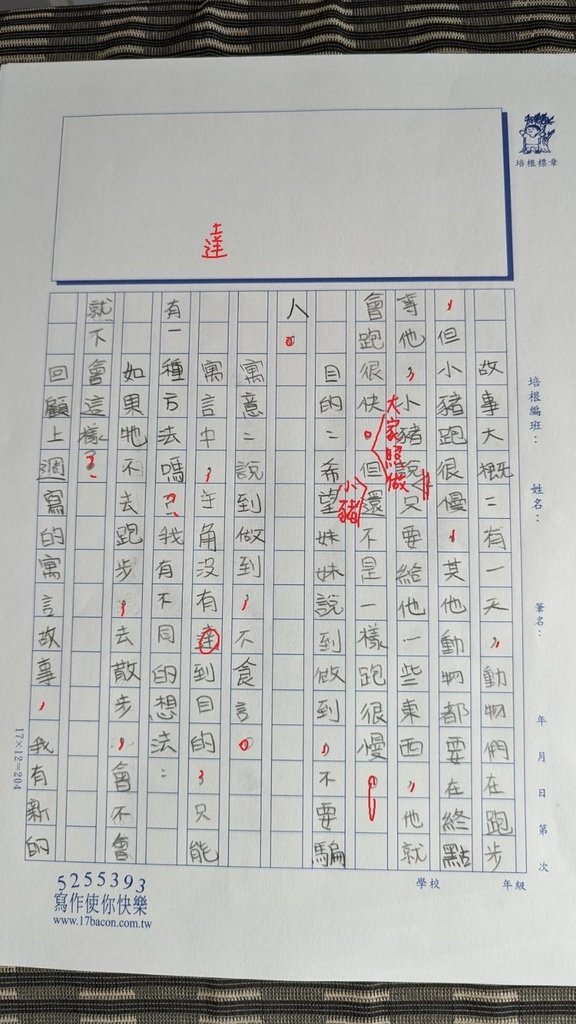 培根標章
達
故事大概：有一天，動物們在跑步
，但小豬跑很慢，其他動物都要在終點
等他，小豬說只要給他一些東西，他就
大家照做
會跑很快。但還不是一樣跑很慢。
小豬
目的：希望妹妹說到做到，不要騙
人。
寓意：說到做到，不食言。
寓言中，主角沒有達到目的，只能
有一種方法嗎？我有不同的想法：
如果牠不去跑步，去散步，會不會
就不會這樣？
回顧上週寫的寓言故事，我有新的
培根編班：
姓名：
筆名：
年 月 日 第 次
17×12=204
學校 年級
5255393
寫作使你快樂
www.17bacon.com.tw